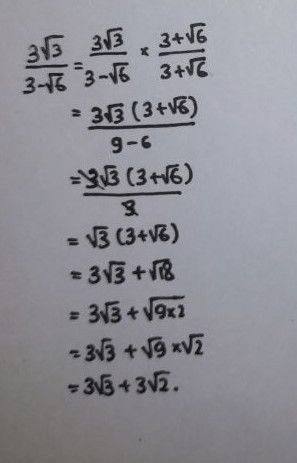 3√3/(3-√6) = 3√3/(3-√6) × (3+√6)/(3+√6)
= 3√3 (3+√6)/(9-6)
= 3√3 (3+√6)/3
= √3 (3+√6)
= 3√3 + √18
= 3√3 + √(9×2)
= 3√3 + √9 × √2
= 3√3 + 3√2.